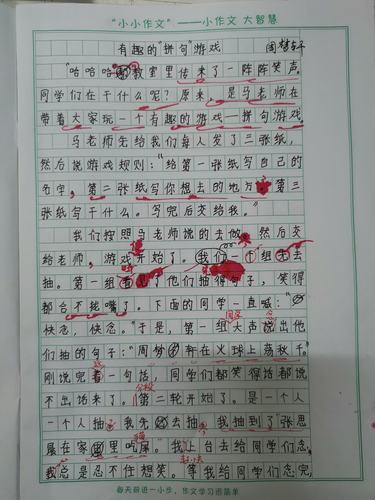 “小小作文”——小作文 大智慧
有趣的“拼句”游戏
“哈哈哈”教室里传来了一阵阵笑声。
同学们在干什么呢？原来，是马老师在
带着大家玩一个有趣的游戏—拼句游戏
马老师先给我们每人发了三张纸，
然后说游戏规则：“给第一张纸写自己的
名字，第二张纸写你想去的地方，第三
张纸写干什么。写完后交给我。”
我们按照马老师说的去做，然后交
给老师，游戏开始了。我们一个组去
抽。第一组 了他们抽得句子，笑得
都合不拢嘴了。下面的同学一直喊：“
快念，快念。”于是，第一组大声说出他
们抽的句子：“周梦 在火球上荡秋千。
刚说完着一句话，同学们都笑得话都说
不出话来了。第二轮开始了。是一个人
一个人抽，我先去抽，我抽到了张思
晨在家里吃屎。”我上台去给同学们念，
我总是忍不住想笑。等我给同学们念完，
每天前进一小步，作文学习很简单